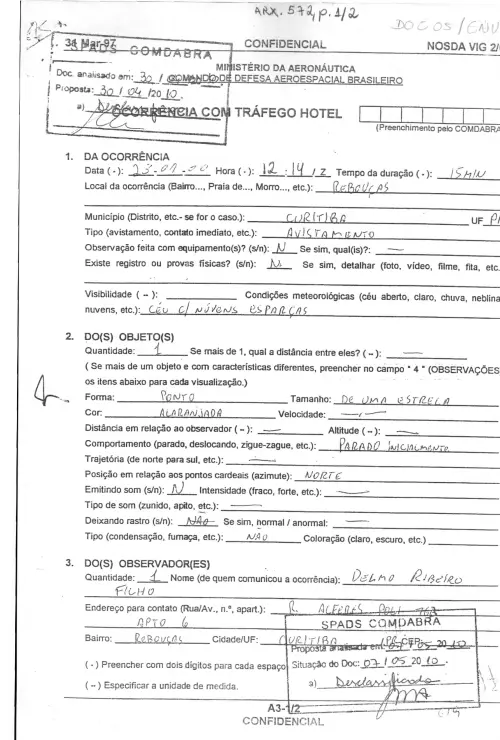 ARX. 572, p. 1/2
31 Mar 97
CONFIDENCIAL
NOSDA VIG 2/
SPADS COMDABRA
MINISTÉRIO DA AERONÁUTICA
Doc. analisado em: 30 /
COMANDO DE DEFESA AEROESPACIAL BRASILEIRO
Proposta: 30 / 04 /20 10.
a) Desclassificado
OCORRÊNCIA COM TRÁFEGO HOTEL
(Preenchimento pelo COMDABRA
1. DA OCORRÊNCIA
Data ( - ): Hora ( - ): 12 : 14 / Z Tempo da duração ( - ): 15 MIN
Local da ocorrência (Bairro..., Praia de..., Morro..., etc.): REBOUÇAS
Município (Distrito, etc.- se for o caso.): CURITIBA UF PR
Tipo (avistamento, contato imediato, etc.): AVISTAMENTO
Observação feita com equipamento(s)? (s/n): N Se sim, qual(is)?: —
Existe registro ou provas físicas? (s/n): N Se sim, detalhar (foto, vídeo, filme, fita, etc.
Visibilidade ( -- ): Condições meteorológicas (céu aberto, claro, chuva, neblina
nuvens, etc.): CÉU C/ NÚVENS ESPARÇAS
2. DO(S) OBJETO(S)
Quantidade: 1 Se mais de 1, qual a distância entre eles? ( -- ): —
( Se mais de um objeto e com características diferentes, preencher no campo " 4 " (OBSERVAÇÕES
os itens abaixo para cada visualização.)
Forma: PONTO Tamanho: DE UMA ESTRELA
Cor: ALARANJADA Velocidade: —
Distância em relação ao observador ( -- ): — Altitude ( -- ): —
Comportamento (parado, deslocando, zigue-zague, etc.): PARADO INICIALMENTO
Trajetória (de norte para sul, etc.): —
Posição em relação aos pontos cardeais (azimute): NORTE
Emitindo som (s/n): N Intensidade (fraco, forte, etc.): —
Tipo de som (zunido, apito, etc.): —
Deixando rastro (s/n): NÃO Se sim, normal / anormal: —
Tipo (condensação, fumaça, etc.): NÃO Coloração (claro, escuro, etc.)
3. DO(S) OBSERVADOR(ES)
Quantidade: 1 Nome (de quem comunicou a ocorrência): DELMO RIBEIRO
FILHO
Endereço para contato (Rua/Av., n.º, apart.): R. ALFERES POLI 763
APTO 6
SPADS COMDABRA
Bairro: REBOUÇAS Cidade/UF: CURITIBA / PR CEP:
Proposta analisada em: 07 / 05 20 10.
( - ) Preencher com dois dígitos para cada espaço
Situação do Doc: 07 / 05 20 10.
( -- ) Especificar a unidade de medida.
a) Desclassificado
A3-1/2
CONFIDENCIAL